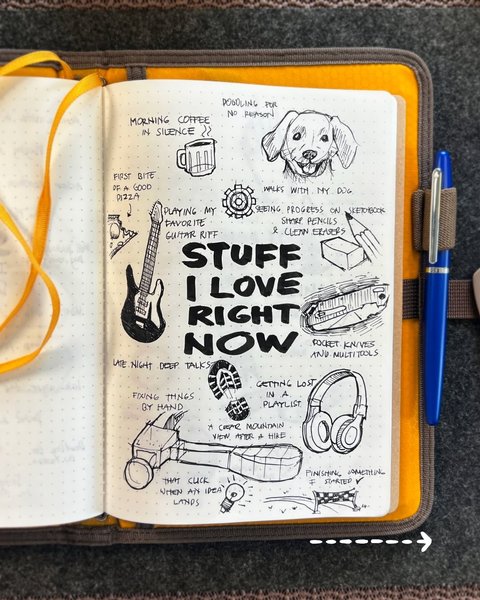 DOODLING FOR
NO REASON
MORNING COFFEE
IN SILENCE
WALKS WITH MY DOG
FIRST BITE
OF A GOOD
PIZZA
PLAYING MY
FAVORITE
GUITAR RIFF
SEEING PROGRESS ON SKETCHBOOK
SHARP PENCILS
& CLEAN ERASERS
STUFF
I LOVE
RIGHT
NOW
POCKET KNIVES
AND MULTITOOLS
LATE NIGHT DEEP TALKS
GETTING LOST
IN A
PLAYLIST
FIXING THINGS
BY HAND
A CLEAR MOUNTAIN
VIEW AFTER A HIKE
THAT CLICK
WHEN AN IDEA
LANDS
FINISHING SOMETHING
I STARTED ✓